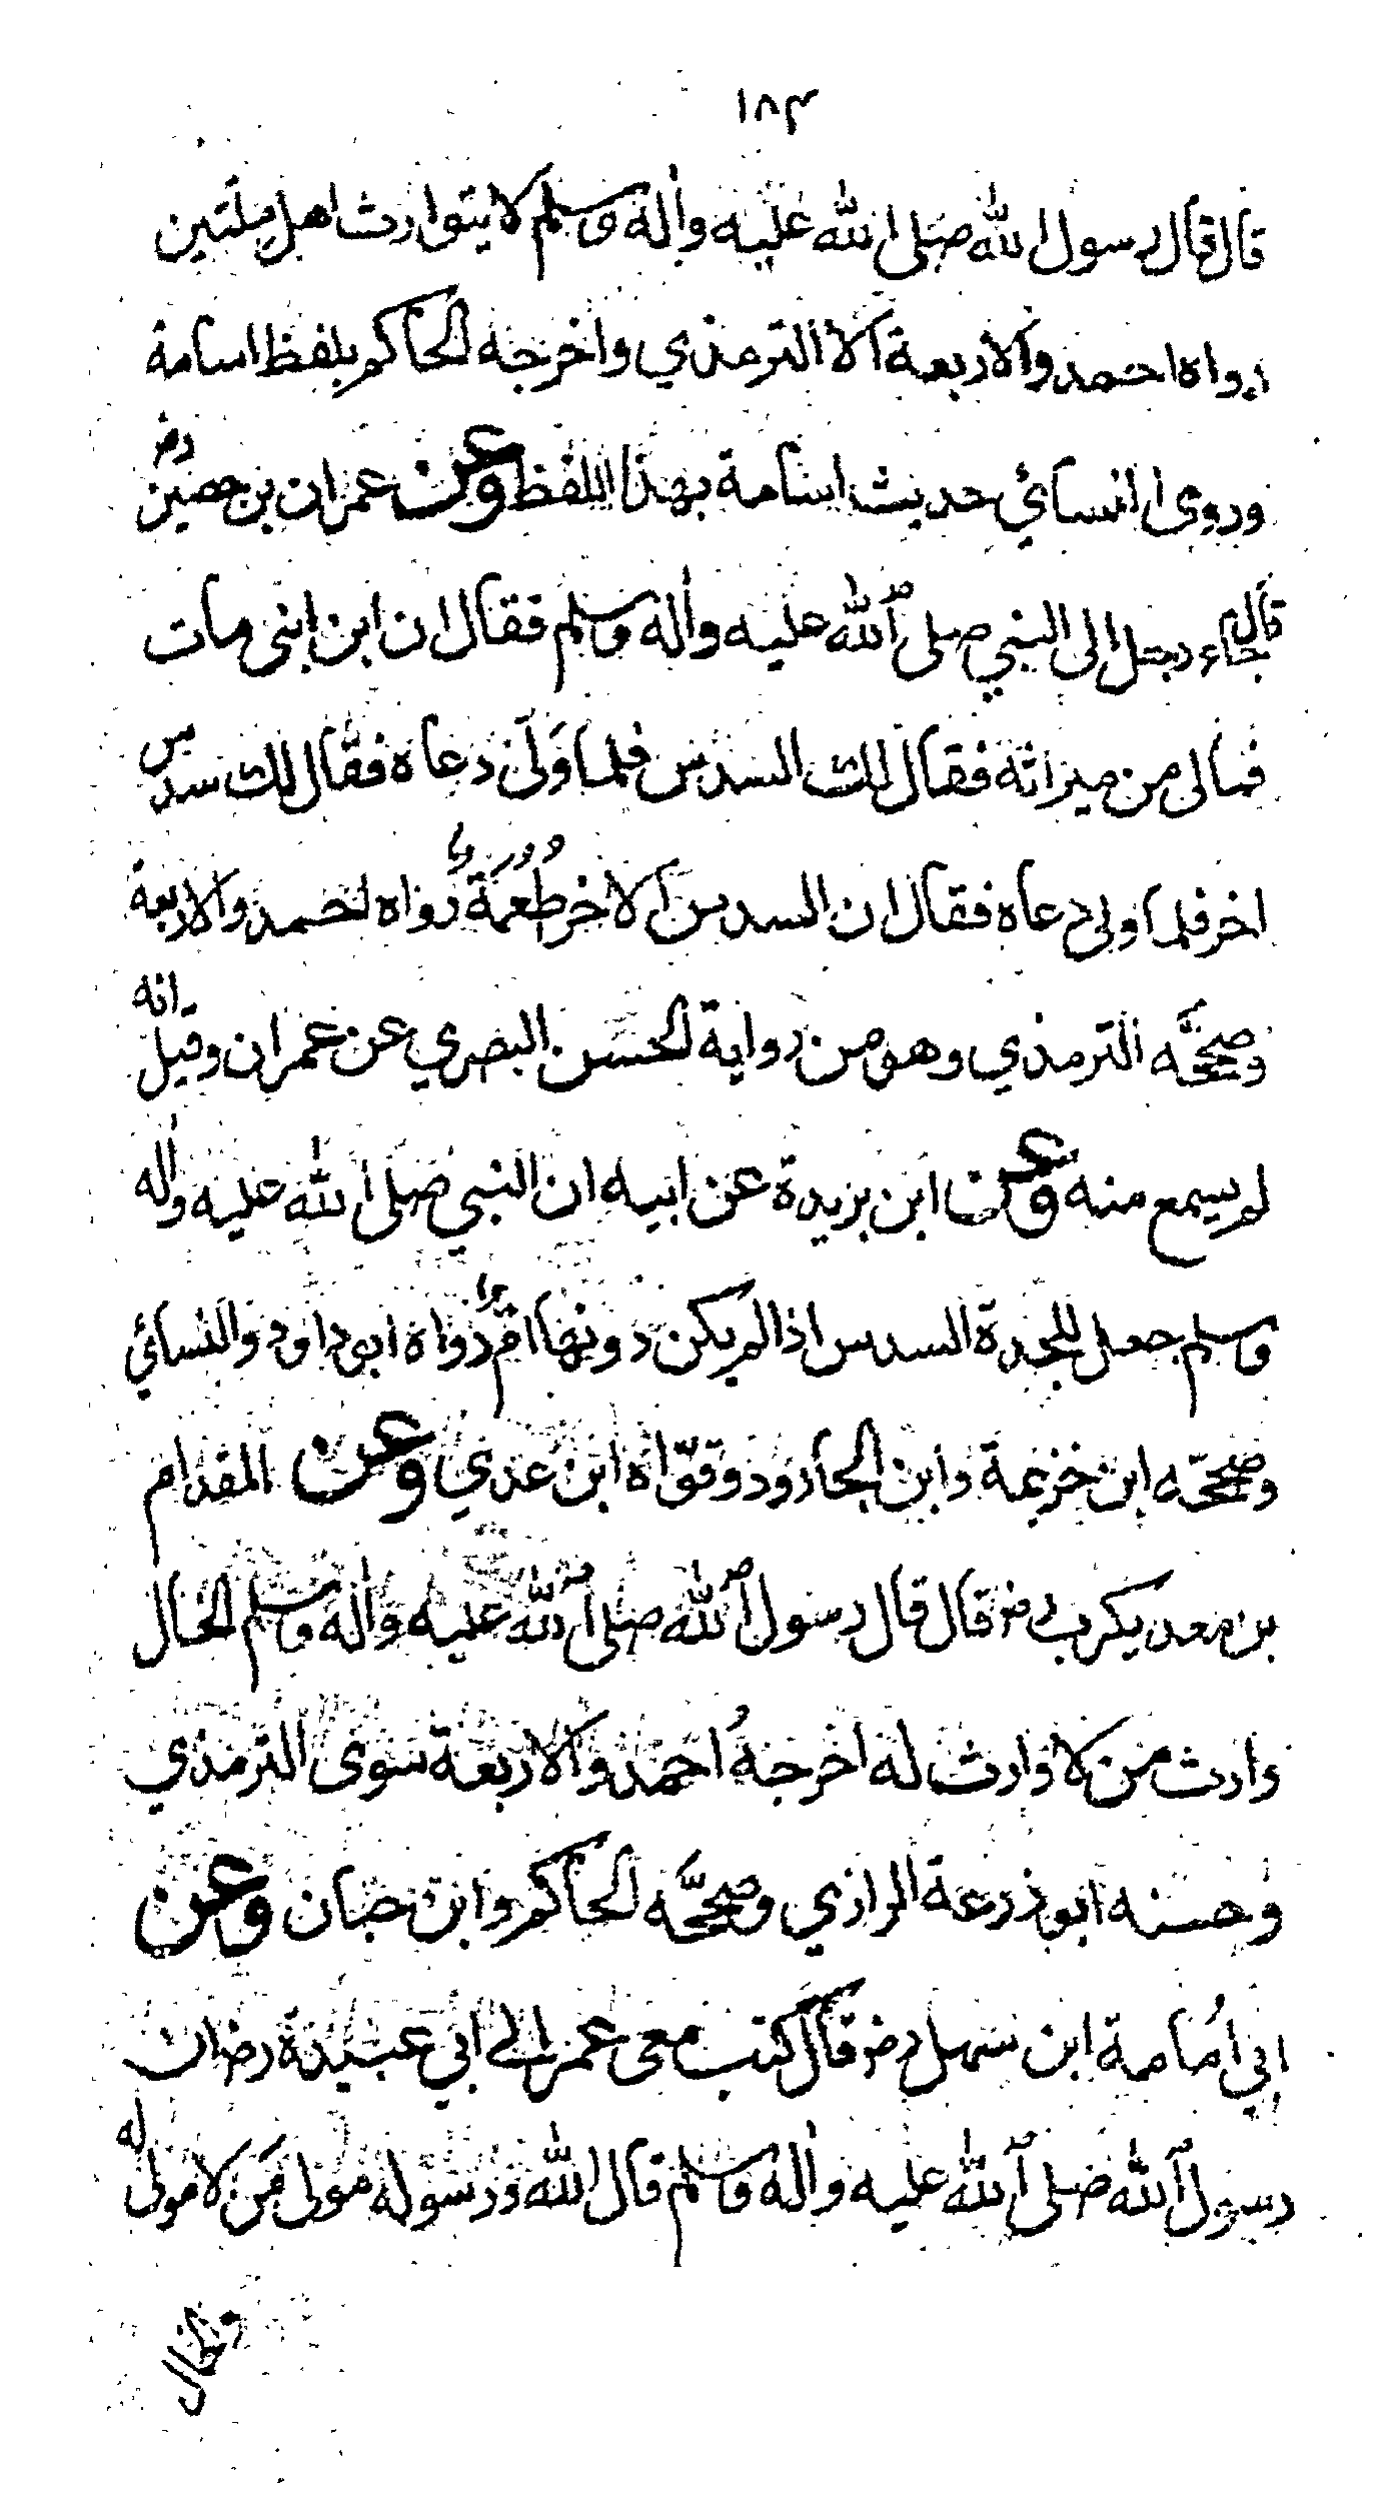 ١٨٣
قال قال رسول الله صلى الله عليه واله وسلم لا يتوارث اهل ملتين
رواه احمد والاربعة الا الترمذي واخرجه الحاكم بلفظ اسامة
وروى النسائي حديث اسامة بهذا اللفظ وعن عمران بن حصين رض
قال جاء رجل الى النبي صلى الله عليه واله وسلم فقال ان ابن ابنى مات
فمالى من ميراثه فقال لك السدس فلما ولى دعاه فقال لك سدس
اخر فلما ولى دعاه فقال ان السدس الاخر طعمة رواه احمد والاربعة
وصححه الترمذي وهو من رواية الحسن البصري عن عمران وقيل انه
لم يسمع منه وعن ابن بريدة عن ابيه ان النبي صلى الله عليه واله
وسلم جعل للجدة السدس اذا لم يكن دونها ام رواه ابو داود والنسائي
وصححه ابن خزيمة وابن الجارود وقواه ابن عدي وعن المقدام
بن معد يكرب رض قال قال رسول الله صلى الله عليه واله وسلم الخال
وارث من لا وارث له اخرجه احمد والاربعة سوى الترمذي
وحسنه ابو زرعة الرازي وصححه الحاكم وابن حبان وعن
ابي امامة ابن سهل رض قال كتب معى عمر الى ابي عبيدة رض ان
رسول الله صلى الله عليه واله وسلم قال الله ورسوله مولى من لا مولى له